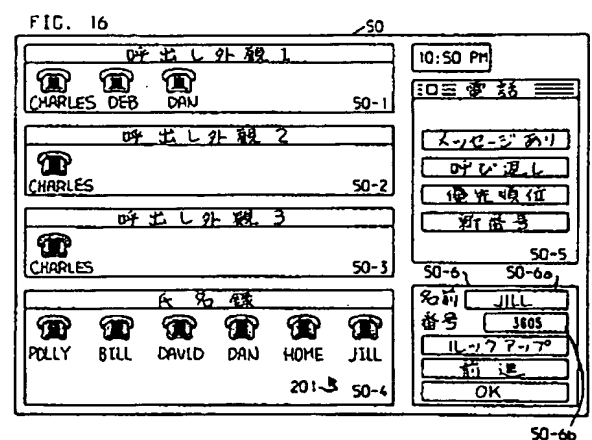 FIG. 16
50
呼出し外観 1
CHARLES DEB DAN
50-1
呼出し外観 2
CHARLES
50-2
呼出し外観 3
CHARLES
50-3
氏名録
POLLY BILL DAVID DAN HOME JILL
201 50-4
10:50 PM
電話
メッセージあり
呼び返し
優先順位
新番号
50-5
50-6 50-6a
名前 JILL
番号 3605
ルックアップ
前進
OK
50-6b